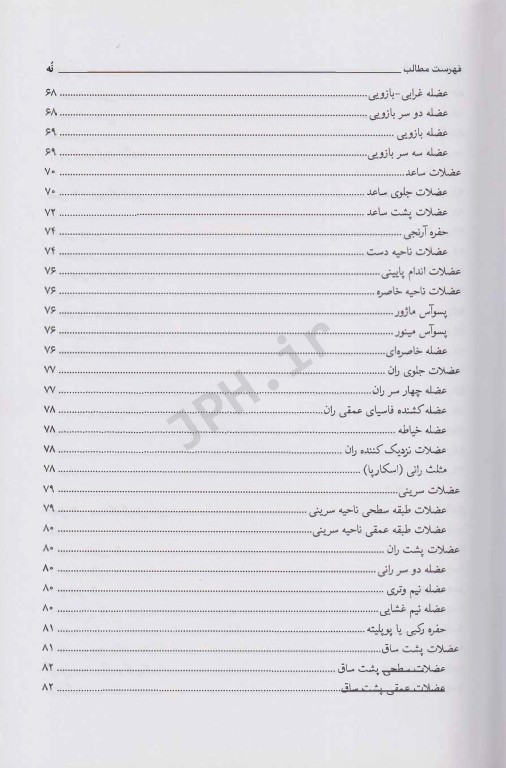 فهرست مطالب نُه
عضله غرابی-بازویی ۶۸
عضله دو سر بازویی ۶۸
عضله بازویی ۶۹
عضله سه سر بازویی ۶۹
عضلات ساعد ۷۰
عضلات جلوی ساعد ۷۰
عضلات پشت ساعد ۷۲
حفره آرنجی ۷۴
عضلات ناحیه دست ۷۴
عضلات اندام پایینی ۷۶
عضلات ناحیه خاصره ۷۶
پسوآس ماژور ۷۶
پسوآس مینور ۷۶
عضله خاصره‌ای ۷۶
عضلات جلوی ران ۷۷
عضله چهار سر ران ۷۷
عضله کشنده فاسیای عمقی ران ۷۸
عضله خیاطه ۷۸
عضلات نزدیک کننده ران ۷۸
مثلث رانی (اسکارپا) ۷۸
عضلات سرینی ۷۹
عضلات طبقه سطحی ناحیه سرینی ۷۹
عضلات طبقه عمقی ناحیه سرینی ۸۰
عضلات پشت ران ۸۰
عضله دو سر رانی ۸۰
عضله نیم وتری ۸۰
عضله نیم غشایی ۸۰
حفره رکبی یا پوپلیته ۸۱
عضلات پشت ساق ۸۱
عضلات سطحی پشت ساق ۸۲
عضلات عمقی پشت ساق ۸۲
JPH.ir